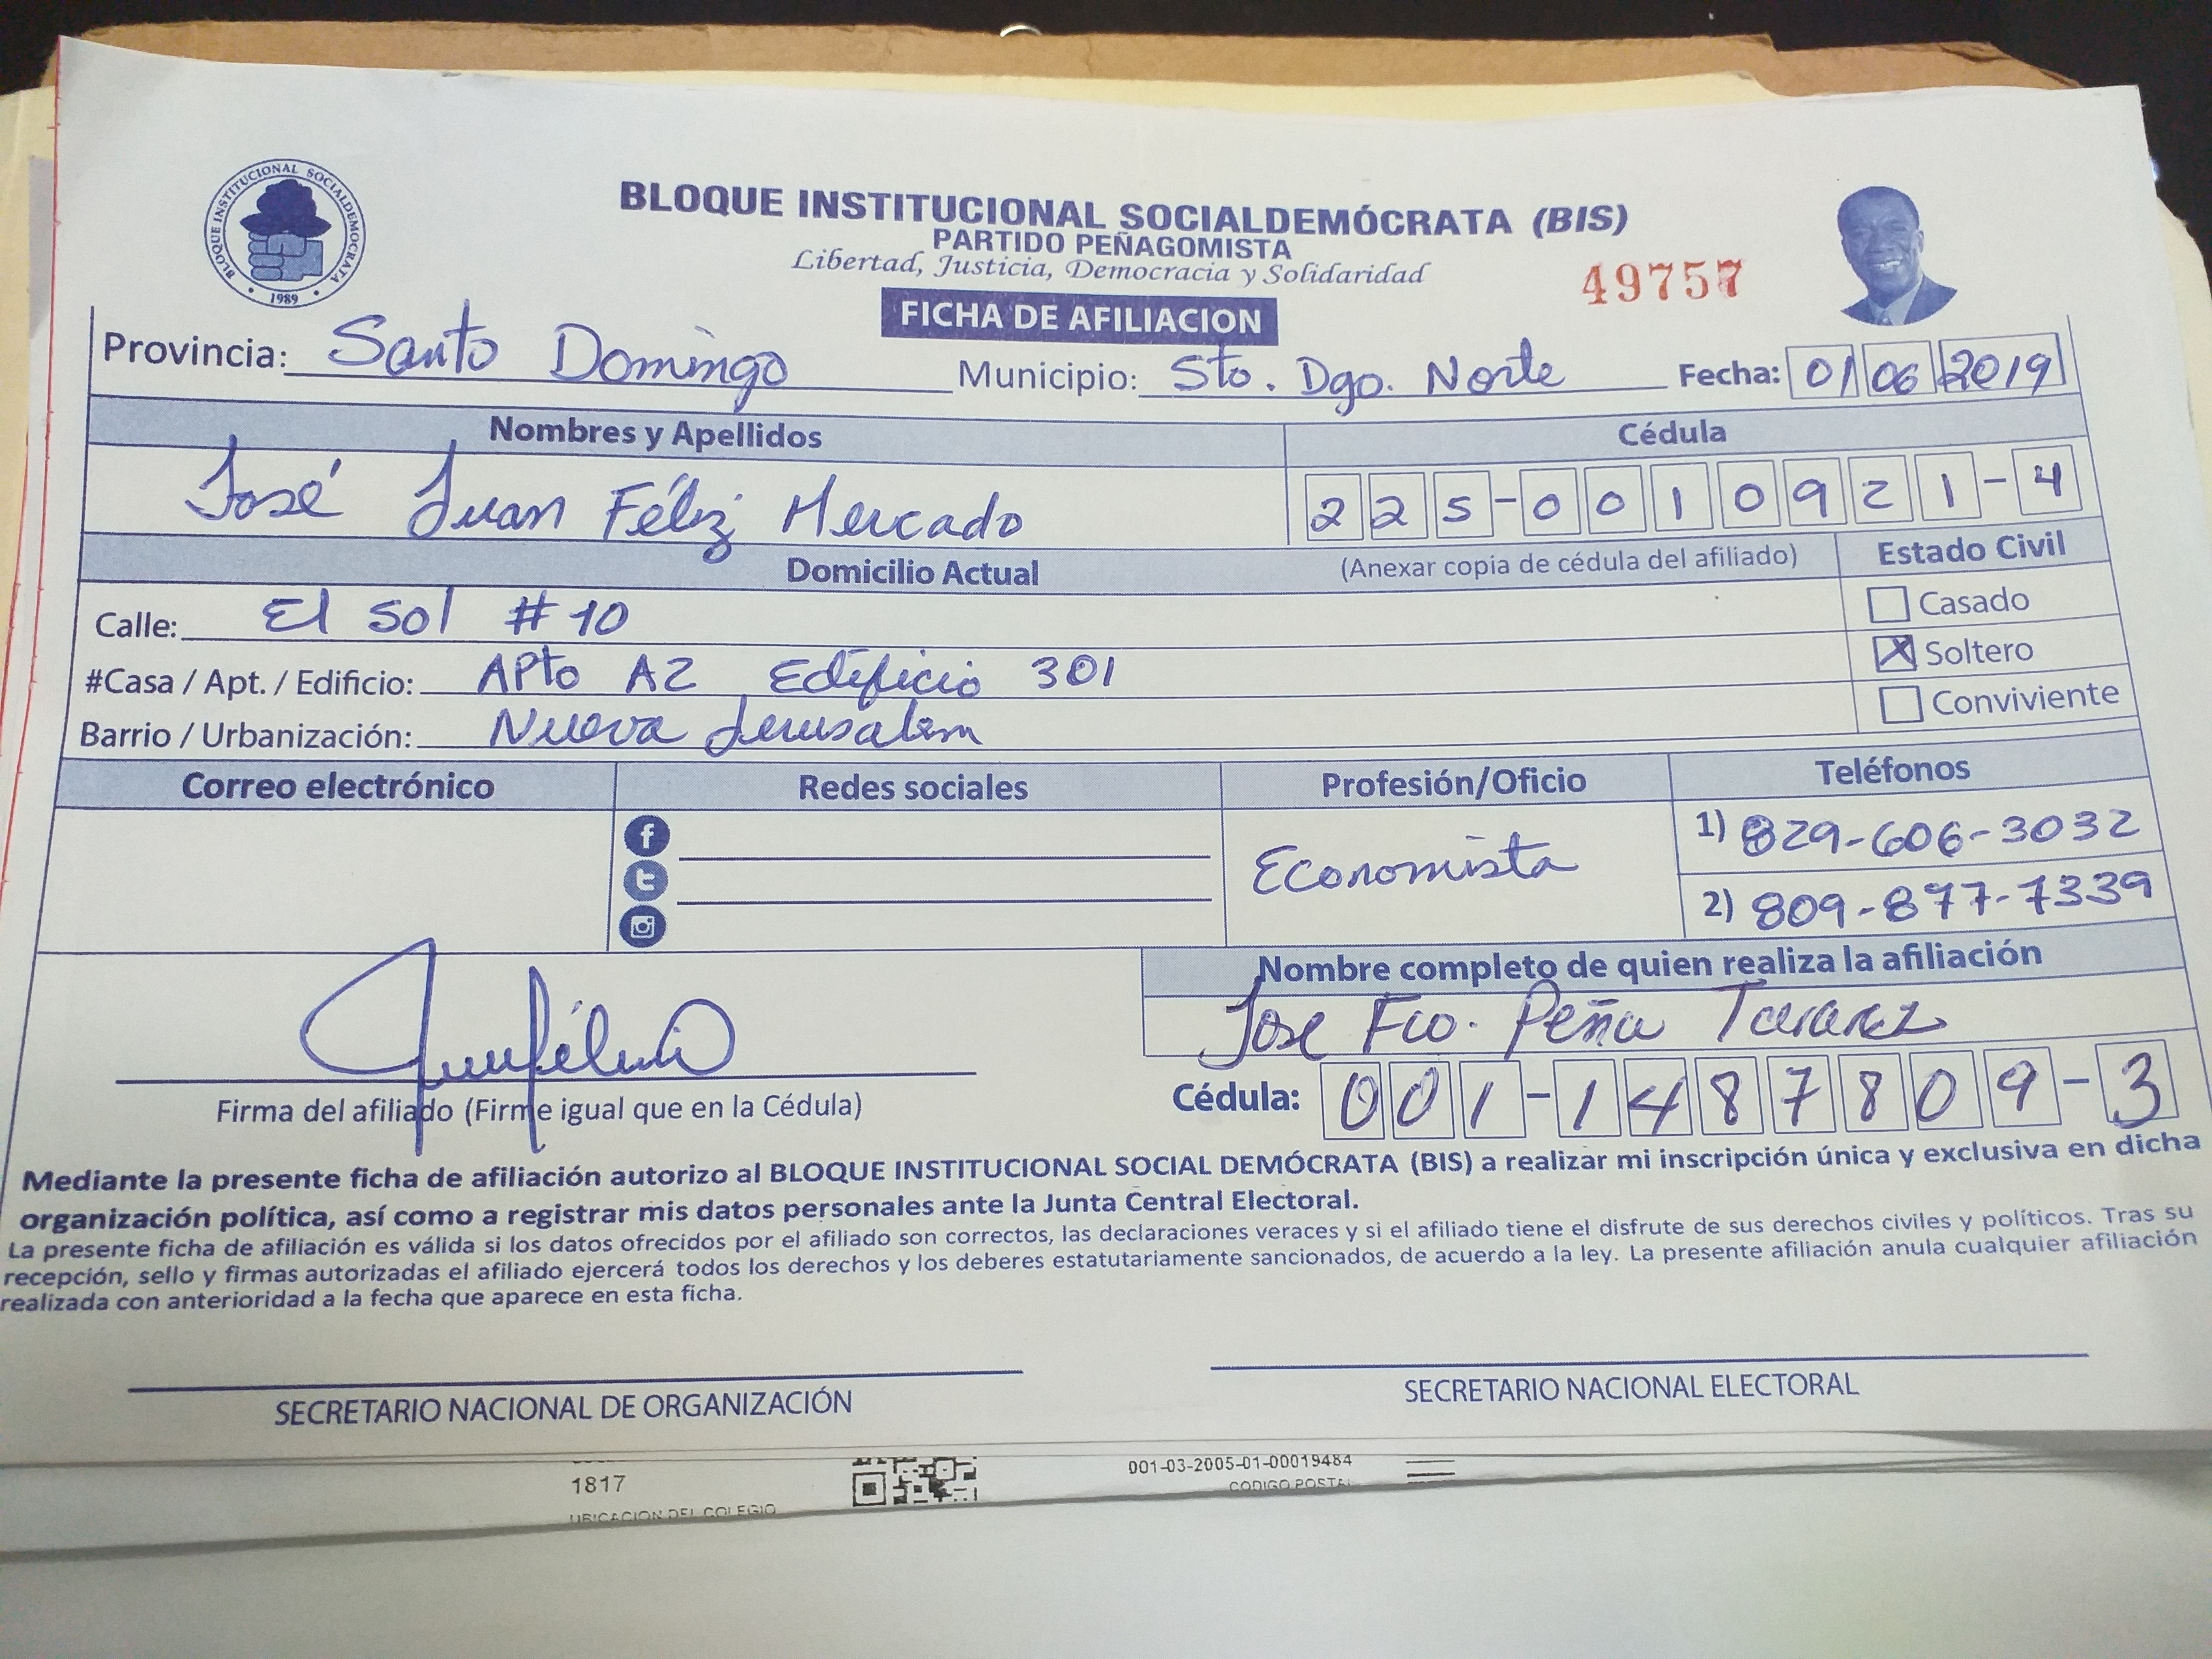 BLOQUE INSTITUCIONAL SOCIALDEMOCRATA
1989
BLOQUE INSTITUCIONAL SOCIALDEMÓCRATA (BIS)
PARTIDO PEÑAGOMISTA
Libertad, Justicia, Democracia y Solidaridad
49757
FICHA DE AFILIACION
Provincia: Santo Domingo Municipio: Sto. Dgo. Norte Fecha: 01 06 2019
Nombres y Apellidos Cédula
José Juan Féliz Mercado 225-0010921-4
Domicilio Actual (Anexar copia de cédula del afiliado) Estado Civil
Calle: El Sol #10 Casado
#Casa / Apt. / Edificio: APto A2 Edificio 301 X Soltero
Barrio / Urbanización: Nueva Jerusalem Conviviente
Correo electrónico Redes sociales Profesión/Oficio Teléfonos
Economista 1) 829-606-3032
2) 809-877-7339
Nombre completo de quien realiza la afiliación
Jose Fco. Peña Tavarez
Firma del afiliado (Firme igual que en la Cédula) Cédula: 001-1487809-3
Mediante la presente ficha de afiliación autorizo al BLOQUE INSTITUCIONAL SOCIAL DEMÓCRATA (BIS) a realizar mi inscripción única y exclusiva en dicha
organización política, así como a registrar mis datos personales ante la Junta Central Electoral.
La presente ficha de afiliación es válida si los datos ofrecidos por el afiliado son correctos, las declaraciones veraces y si el afiliado tiene el disfrute de sus derechos civiles y políticos. Tras su
recepción, sello y firmas autorizadas el afiliado ejercerá todos los derechos y los deberes estatutariamente sancionados, de acuerdo a la ley. La presente afiliación anula cualquier afiliación
realizada con anterioridad a la fecha que aparece en esta ficha.
SECRETARIO NACIONAL DE ORGANIZACIÓN SECRETARIO NACIONAL ELECTORAL
1817 001-03-2005-01-00019484
UBICACION DEL COLEGIO CODIGO POSTAL